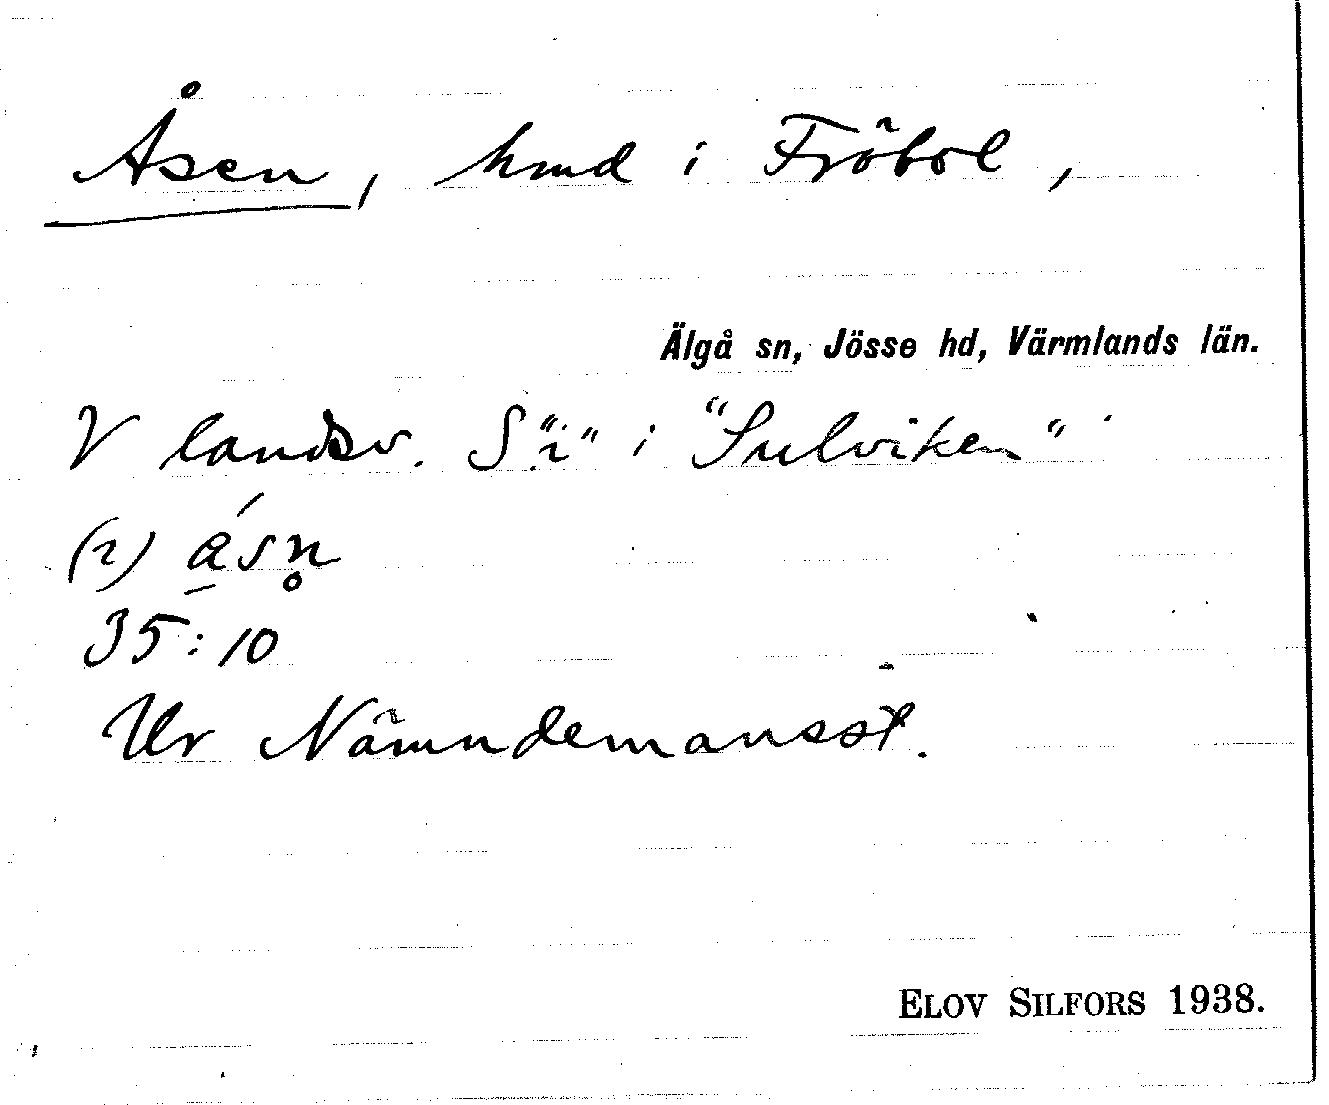 Åsen, hmd i Fröbol,
Älgå sn, Jösse hd, Värmlands län.
V landsv. S. "i" i "Sulviken"
(2) ásn̥
35:10
Ur Nämndemansst.
ELOV SILFORS 1938.